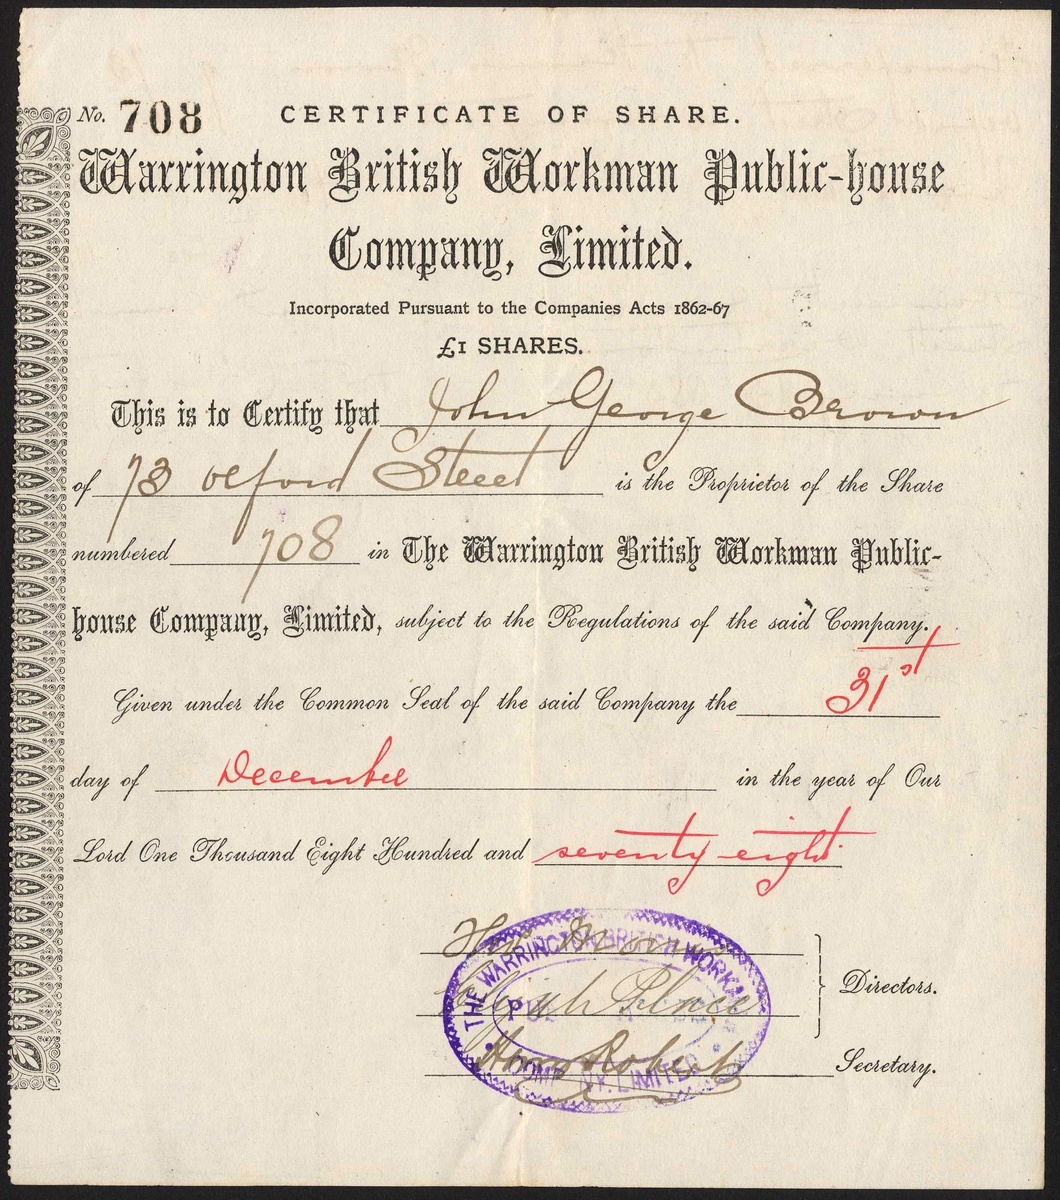 No. 708 CERTIFICATE OF SHARE.
Warrington British Workman Public-house
Company, Limited.
Incorporated Pursuant to the Companies Acts 1862-67
£1 SHARES.
This is to Certify that John George Brown
of 73 Street is the Proprietor of the Share
numbered 708 in The Warrington British Workman Public-
house Company, Limited, subject to the Regulations of the said Company.
Given under the Common Seal of the said Company the 31st
day of December in the year of Our
Lord One Thousand Eight Hundred and seventy eight
THE WARRINGTON BRITISH WORKMAN
LIMITED
Directors.
Secretary.